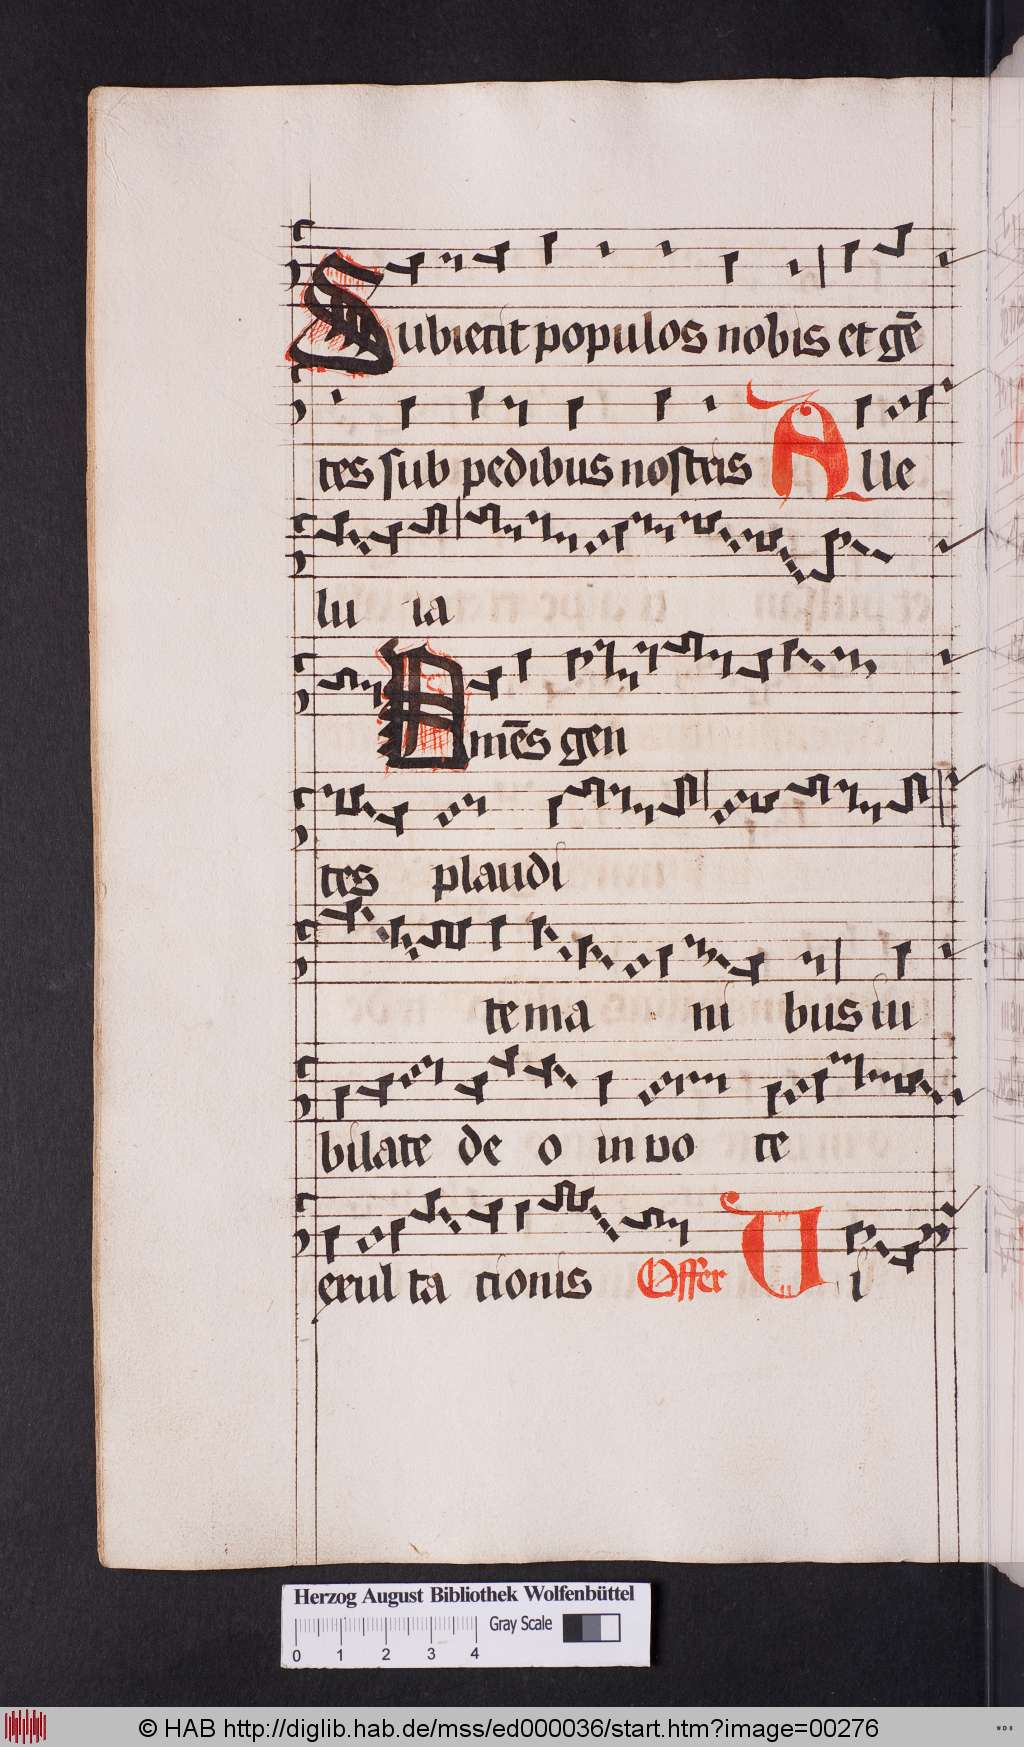 Subiecit populos nobis et gē
tes sub pedibus nostris Alle
lu ia
Omēs gen
tes plaudi
te ma ni bus iu
bilate de o in vo te
exul ta cionis Offer Vi
Herzog August Bibliothek Wolfenbüttel
Gray Scale
0 1 2 3 4
© HAB http://diglib.hab.de/mss/ed000036/start.htm?image=00276